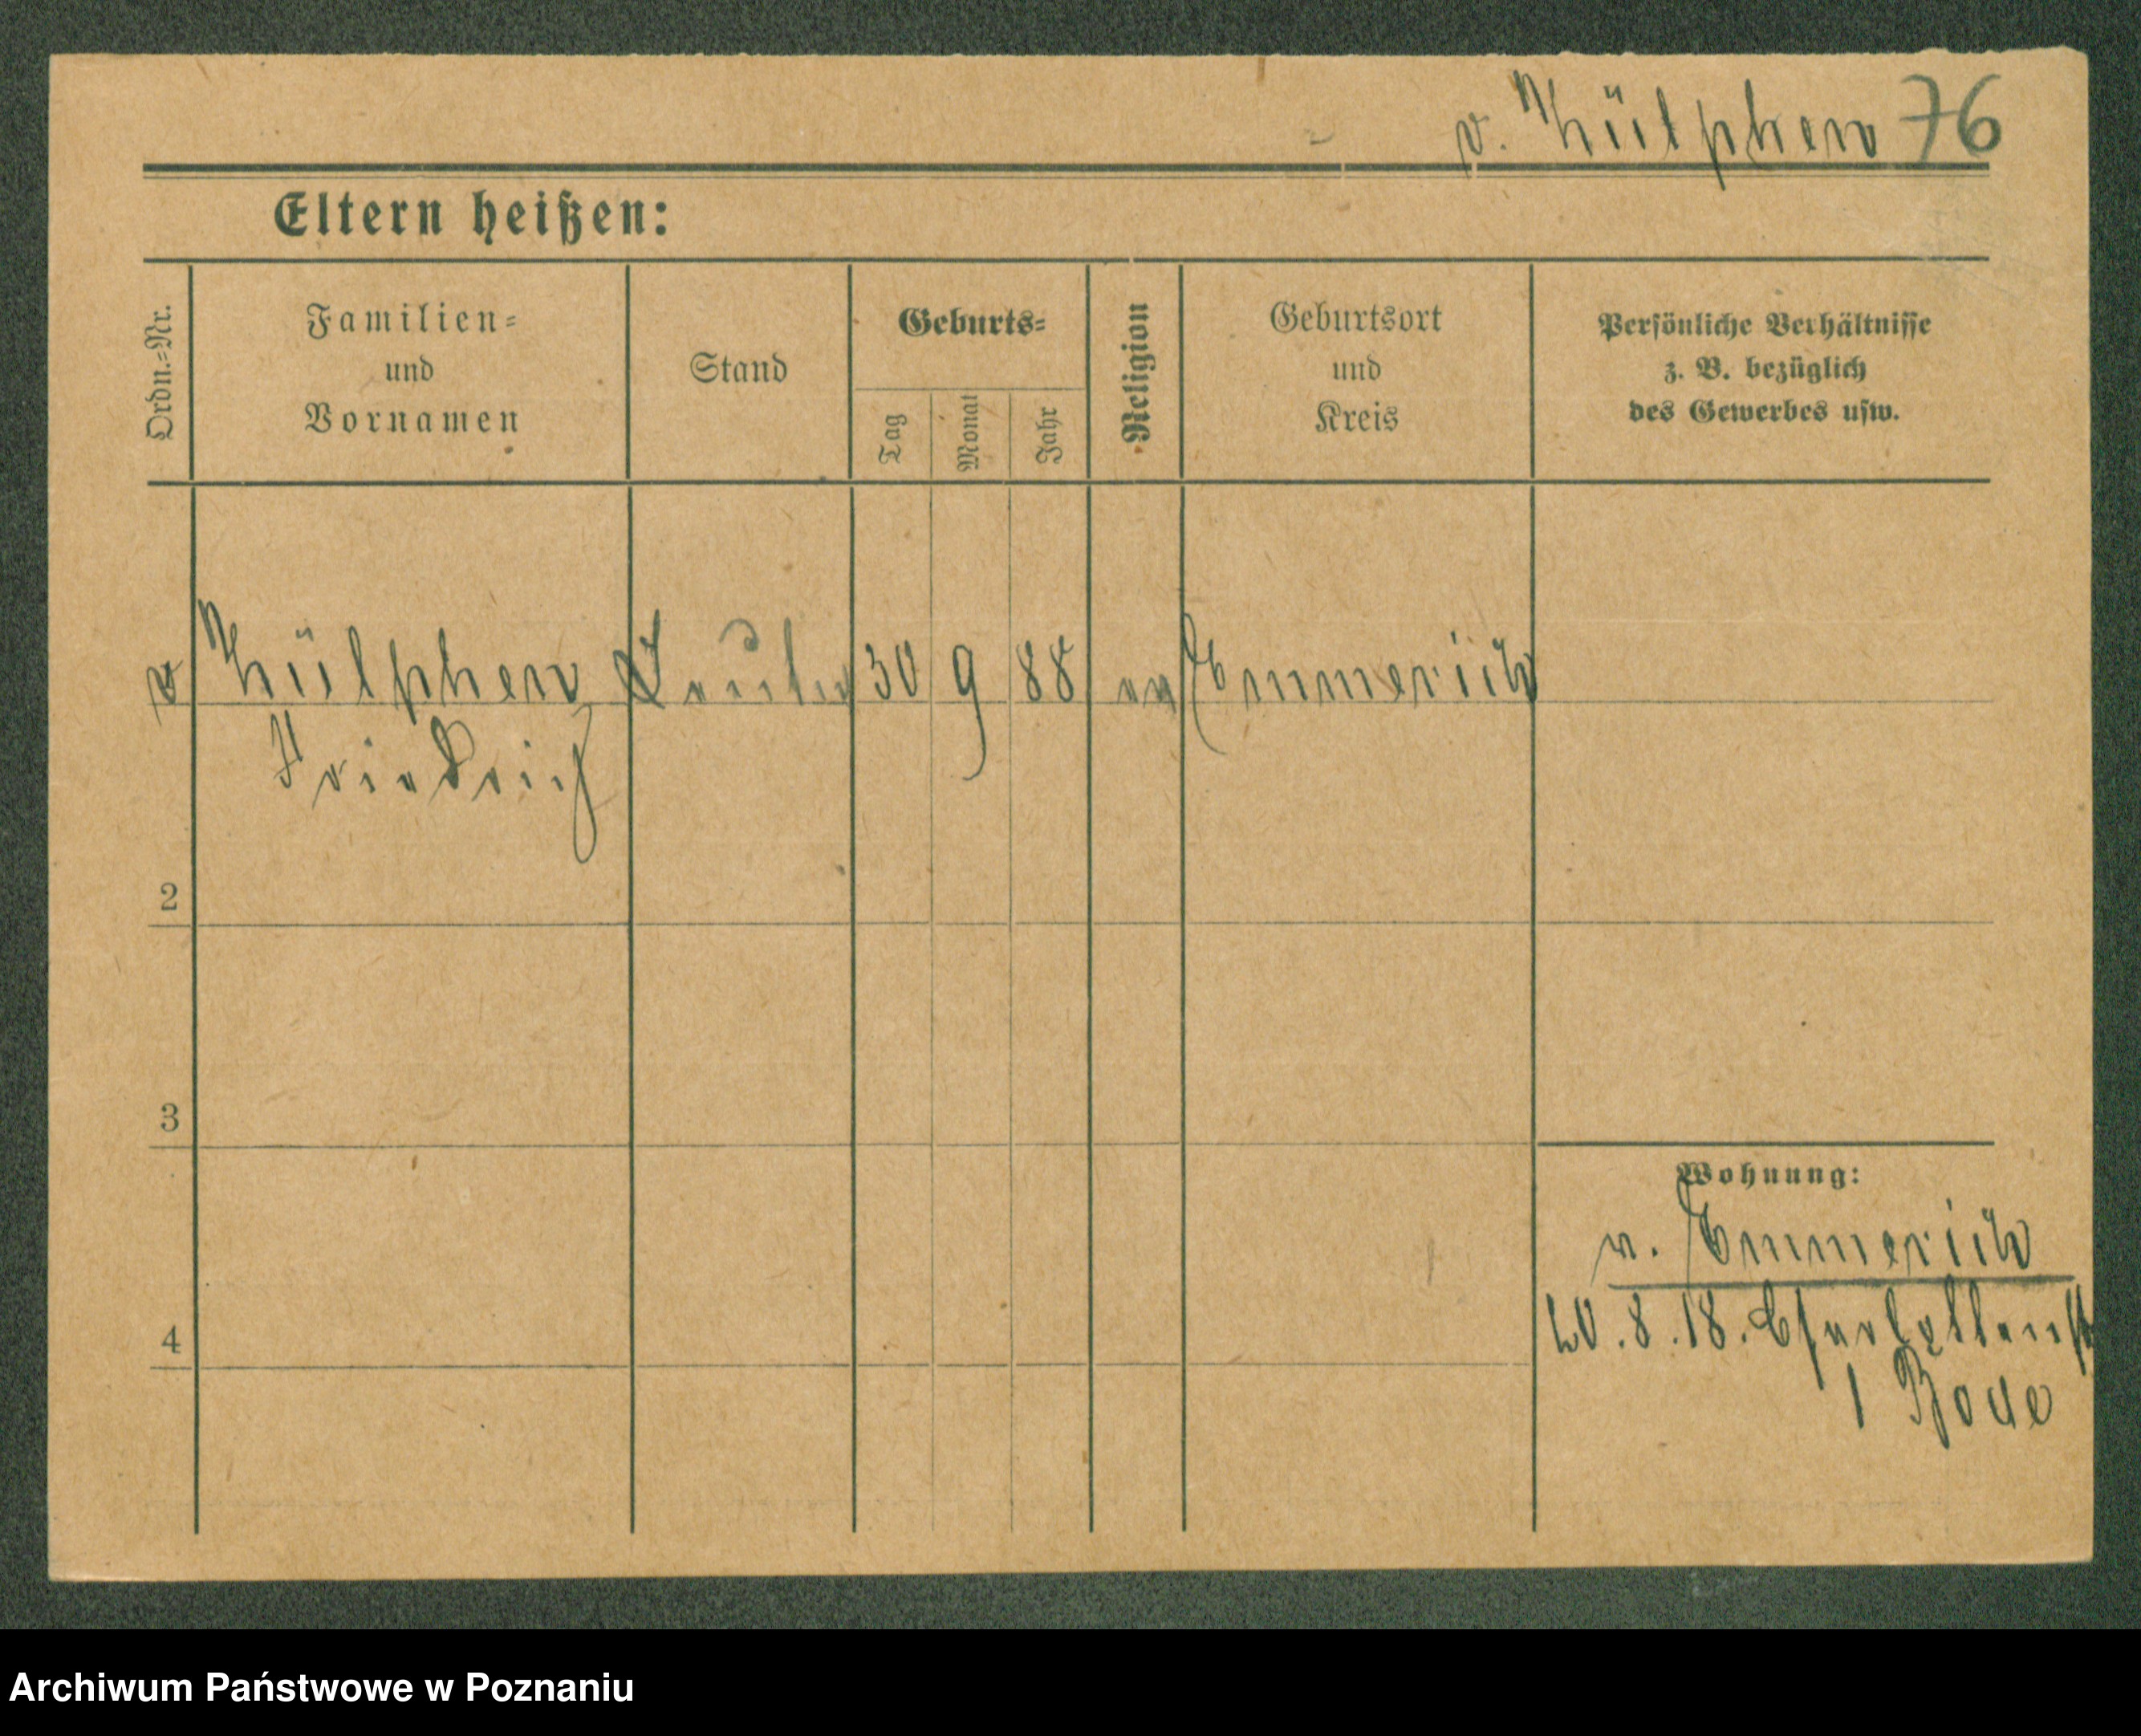 v. Hülphen 76
Eltern heißen:
Ordn.=Nr.
Familien=
und
Vornamen
Stand
Geburts=
Tag
Monat
Jahr
Religion
Geburtsort
und
Kreis
Persönliche Verhältnisse
z. B. bezüglich
des Gewerbes usw.
v Hülphen 30 9 88 Emmerich
Friedrich
2
3
4
Wohnung:
v. Emmerich
20.8.18.
1 Bode
Archiwum Państwowe w Poznaniu